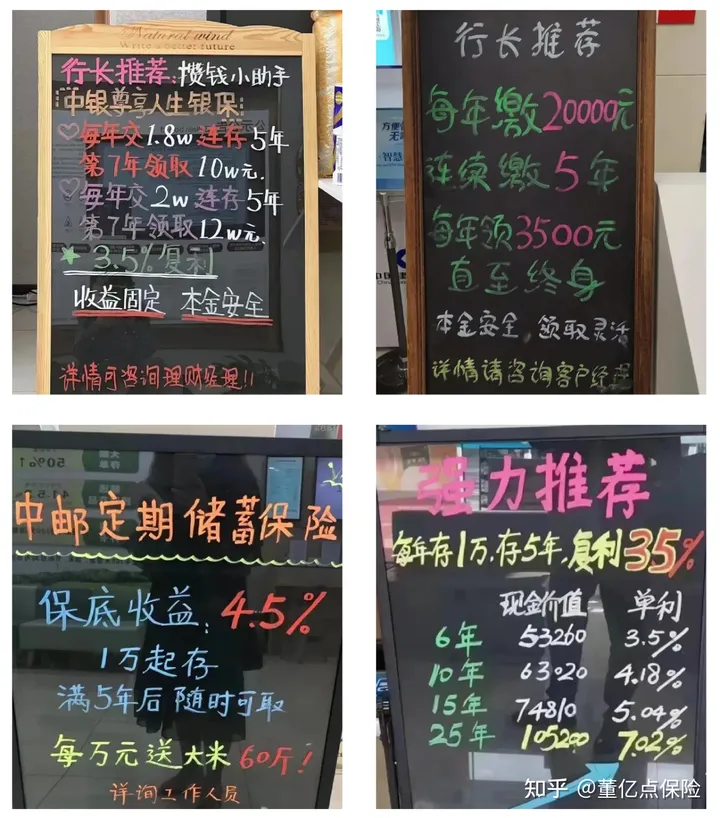 Natural wind
Write a better future
行长推荐:攒钱小助手
中银尊享人生银保
每年交1.8w连存5年
第7年领取10w元.
每年交2w连存5年
第7年领取12w元.
3.5%复利
收益固定 本金安全
详情可咨询理财经理!!
行长推荐
每年缴20000元
连续缴5年
每年领3500元
直至终身
本金安全,领取灵活
详情请咨询客户经理
中邮定期储蓄保险
保底收益:4.5%
1万起存
满5年后随时可取
每万元送大米60斤!
详询工作人员
强力推荐
每年存1万,存5年,复利35%
现金价值 单利
6年 53260 3.5%
10年 63020 4.18%
15年 74810 5.04%
25年 105200 7.02%
知乎 @董亿点保险